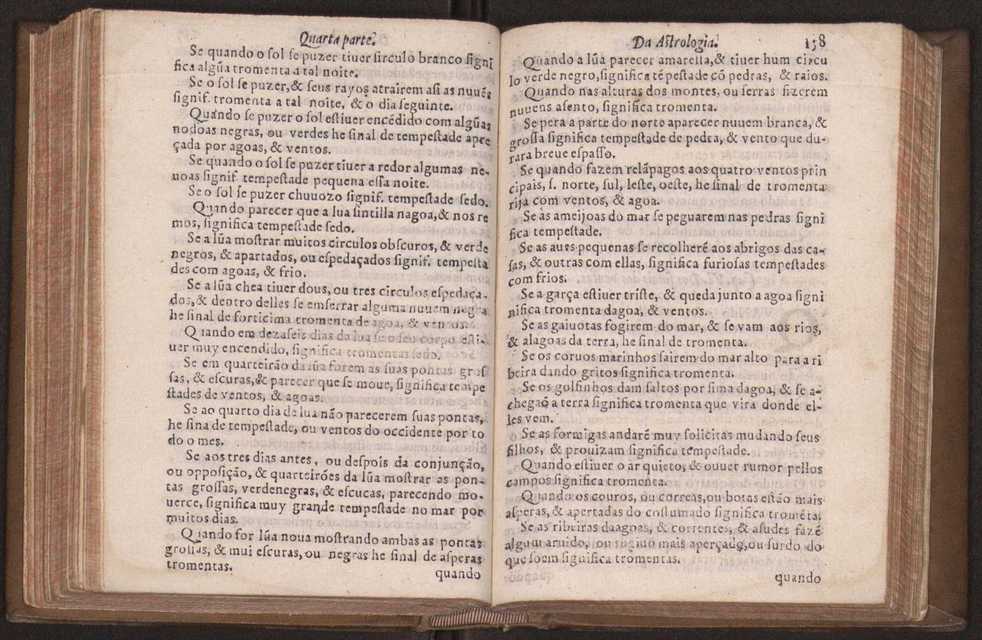 Quarta parte.
Se quando o sol se puzer tiuer sirculo branco signi
fica algũa tromenta a tal noite.
Se o sol se puzer, & seus rayos atrairem asi as nuuẽs
signif. tromenta a tal noite, & o dia seguinte.
Quando se puzer o sol estiuer encẽdido com algũas
nodoas negras, ou verdes he sinal de tempestade apre
çada por agoas, & ventos.
Se quando o sol se puzer tiuer a redor algumas ne-
uoas signif. tempestade pequena essa noite.
Se o sol se puzer chuuozo signif. tempestade sedo.
Quando parecer que a lua sintilla nagoa, & nos re
mos, significa tempestade sedo.
Se a lũa mostrar muitos circulos obscuros, & verde
negros, & apartados, ou espedaçados signif. tempesta
des com agoas, & frio.
Se a lũa chea tiuer dous, ou tres circulos espedaça-
dos, & dentro delles se emserrar alguma nuuem negra
he sinal de forticima tromenta de agoa, & ventos.
Quando em dezaseis dias da lua se o seu corpo esti-
uer muy encendido, significa tromentas sedo.
Se em quarteirão da lũa forem as suas pontas gros
sas, & escuras, & parecer que se moue, significa tempe
stades de ventos, & agoas.
Se ao quarto dia de lua não parecerem suas pontas,
he sina de tempestade, ou ventos do occidente por to
do o mes.
Se aos tres dias antes, ou despois da conjunção,
ou opposição, & quarteirões da lũa mostrar as pon-
tas grossas, verdenegras, & escucas, parecendo mo-
uerce, significa muy grande tempestade no mar por
muitos dias.
Quando for lũa noua mostrando ambas as pontas
grossas, & mui escuras, ou negras he sinal de asperas
tromentas.
quando
Da Astrologia. 158
Quando a lũa parecer amarella, & tiuer hum circu
lo verde negro, significa tẽpestade cõ pedras, & raios.
Quando nas alturas dos montes, ou serras fizerem
nuuens asento, significa tromenta.
Se pera a parte do norte aparecer nuuem branca, &
grossa significa tempestade de pedra, & vento que du-
rara breue espasso.
Se quando fazem relãpagos aos quatro ventos prin
cipais, s. norte, sul, leste, oeste, he sinal de tromenta
rija com ventos, & agoa.
Se as ameijoas do mar se peguarem nas pedras signi
fica tempestade.
Se as aues pequenas se recolherẽ aos abrigos das ca-
sas, & outras com ellas, significa furiosas tempestades
com frios.
Se a garça estiuer triste, & queda junto a agoa signi
nifica tromenta dagoa, & ventos.
Se as gaiuotas fogirem do mar, & se vam aos rios,
& alagoas da terra, he sinal de tromenta.
Se os coruos marinhos sairem do mar alto para a ri
beira dando gritos significa tromenta.
Se os golfinhos dam saltos por sima dagoa, & se a-
chegaõ a terra significa tromenta que vira donde el-
les vem.
Se as formigas andarẽ muy solicitas mudando seus
filhos, & prouizam significa tempestade.
Quando estiuer o ar quieto, & ouuer rumor pellos
campos significa tromenta.
Quando os couros, ou correas, ou botas estão mais
asperas, & apertadas do costumado significa tromẽta.
Se as ribeiras daagoas, & correntes, & asudes fazẽ
algum arruido, ou mais aperçado, ou surdo do
que soem significa tromentas.
quando